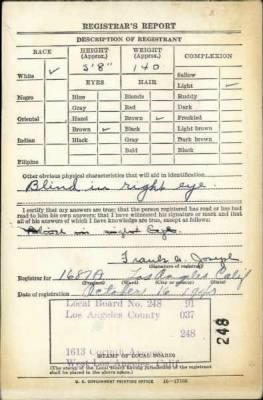 REGISTRAR'S REPORT
DESCRIPTION OF REGISTRANT
RACE HEIGHT (Approx.) WEIGHT (Approx.) COMPLEXION
5'8" 140
White ✓ EYES HAIR Sallow
Light ✓
Negro Blue Blonde Ruddy
Gray Red Dark
Oriental Hazel Brown ✓ Freckled
Brown ✓ Black Light brown
Indian Black Gray Dark brown
Bald Black
Filipino
Other obvious physical characteristics that will aid in identification
Blind in right eye.
I certify that my answers are true; that the person registered has read or has had read to him his own answers; that I have witnessed his signature or mark and that all of his answers of which I have knowledge are true, except as follows:
in right Eye
(Signature of registrar)
Registrar for 1687A Los Angeles Calif
(Precinct) (Ward) (City or county) (State)
Date of registration October 16, 1940
Local Board No. 248 91
Los Angeles County 037
248
1613
West Los Angeles, Calif.
(STAMP OF LOCAL BOARD)
(The stamp of the Local Board having jurisdiction of the registrant
shall be placed in the above space.)
U. S. GOVERNMENT PRINTING OFFICE